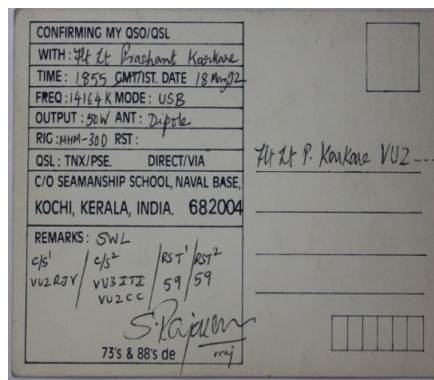 CONFIRMING MY QSO/QSL
WITH : Flt Lt Prashant Karkare
TIME : 1855 GMT/IST. DATE 18 May 92
FREQ : 14164 K MODE : USB
OUTPUT : 50W ANT : Dipole
RIG : MHM-30D RST :
QSL : TNX/PSE. DIRECT/VIA
C/O SEAMANSHIP SCHOOL, NAVAL BASE,
KOCHI, KERALA, INDIA. 682004
REMARKS : SWL
C/S¹ / C/S² / RST¹ / RST²
VU2RJV / VU3ITI / 59 / 59
VU2CC
73's & 88's de
Flt Lt P. Karkare VU2 ---